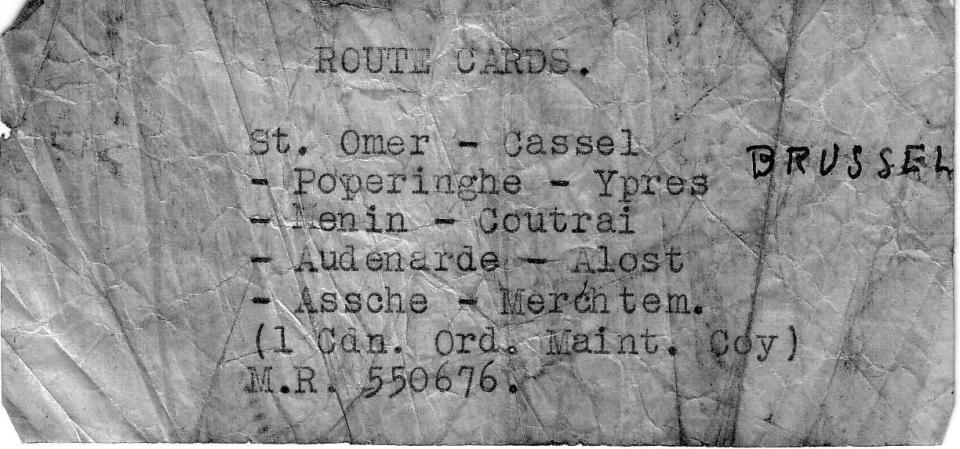 ROUTE CARDS.
St. Omer - Cassel
- Poperinghe - Ypres
BRUSSEL
- Menin - Coutrai
- Audenarde - Alost
- Assche - Merchtem.
(1 Cdn. Ord. Maint. Coy)
M.R. 550676.